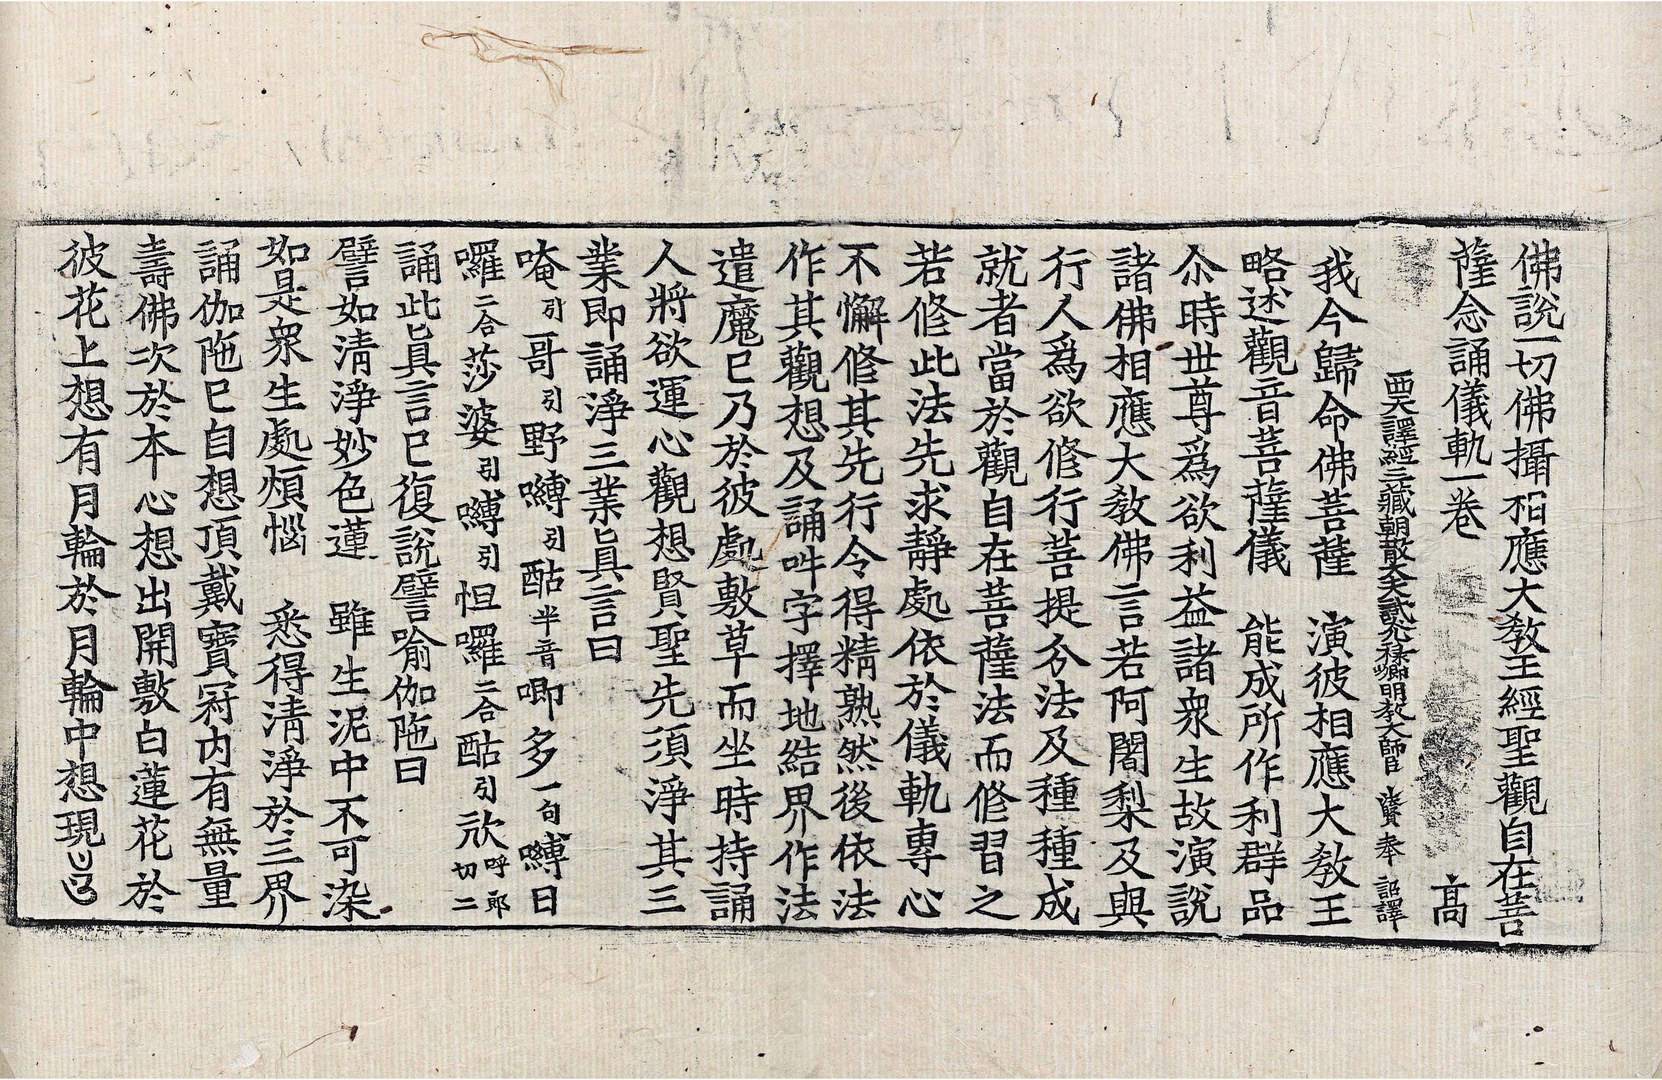 佛說一切佛攝相應大敎王經聖觀自在菩
薩念誦儀軌一卷　高
西天譯經三藏朝散大夫試光祿卿明教大師臣法賢奉　詔譯
我今歸命佛菩薩　演彼相應大敎王
略述觀音菩薩儀　能成所作利群品
尒時世尊爲欲利益諸衆生故演說
諸佛相應大教佛言若阿闍梨及與
行人爲欲修行菩提分法及種種成
就者當於觀自在菩薩法而修習之
若修此法先求靜處依於儀軌專心
不懈修其先行令得精熟然後依法
作其觀想及誦吽字擇地結界作法
遣魔已乃於彼處敷草而坐時持誦
人將欲運心觀想賢聖先須淨其三
業即誦淨三業眞言曰
唵引哥引野嚩引酤半音唧多一句嚩曰
囉二合莎婆引嚩引怛囉二合酤引欣呼郎切二
誦此眞言已復說譬喻伽陁曰
譬如淸淨妙色蓮　雖生泥中不可染
如是衆生處煩惱　悉得淸淨於三界
誦伽陁已自想頂戴寶冠內有無量
壽佛次於本心想出開敷白蓮花於
彼花上想有月輪於月輪中想現